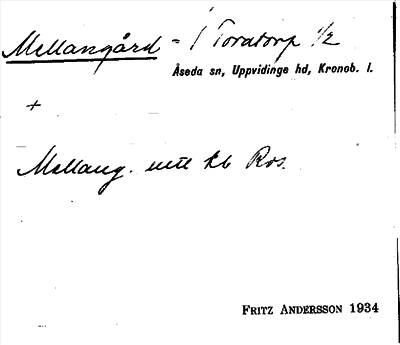 Mellangård = 1 Toratorp 1/2
Åseda sn, Uppvidinge hd, Kronob. l.
+
Mellang. utt kb Ros.
FRITZ ANDERSSON 1934